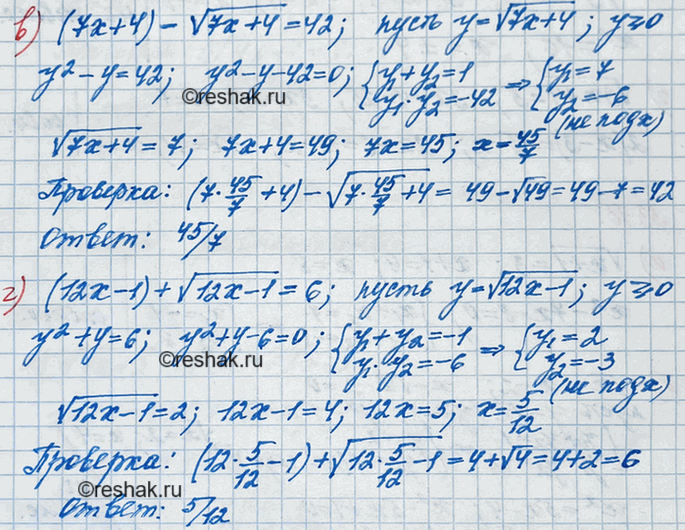 в) (7x+4) - √(7x+4) = 42; пусть y = √(7x+4); y ≥ 0
y² - y = 42; y² - y - 42 = 0; { y₁ + y₂ = 1 y₁·y₂ = -42 ⇒ { y₁ = 7 y₂ = -6 (не подх)
©reshak.ru
√(7x+4) = 7; 7x+4 = 49; 7x = 45; x = 45/7
Проверка: (7·45/7 + 4) - √(7·45/7 + 4) = 49 - √49 = 49 - 7 = 42
Ответ: 45/7
г) (12x-1) + √(12x-1) = 6; пусть y = √(12x-1); y ≥ 0
y² + y = 6; y² + y - 6 = 0; { y₁ + y₂ = -1 y₁·y₂ = -6 ⇒ { y₁ = 2 y₂ = -3 (не подх)
©reshak.ru
√(12x-1) = 2; 12x-1 = 4; 12x = 5; x = 5/12
Проверка: (12·5/12 - 1) + √(12·5/12 - 1) = 4 + √4 = 4 + 2 = 6
©reshak.ru
Ответ: 5/12